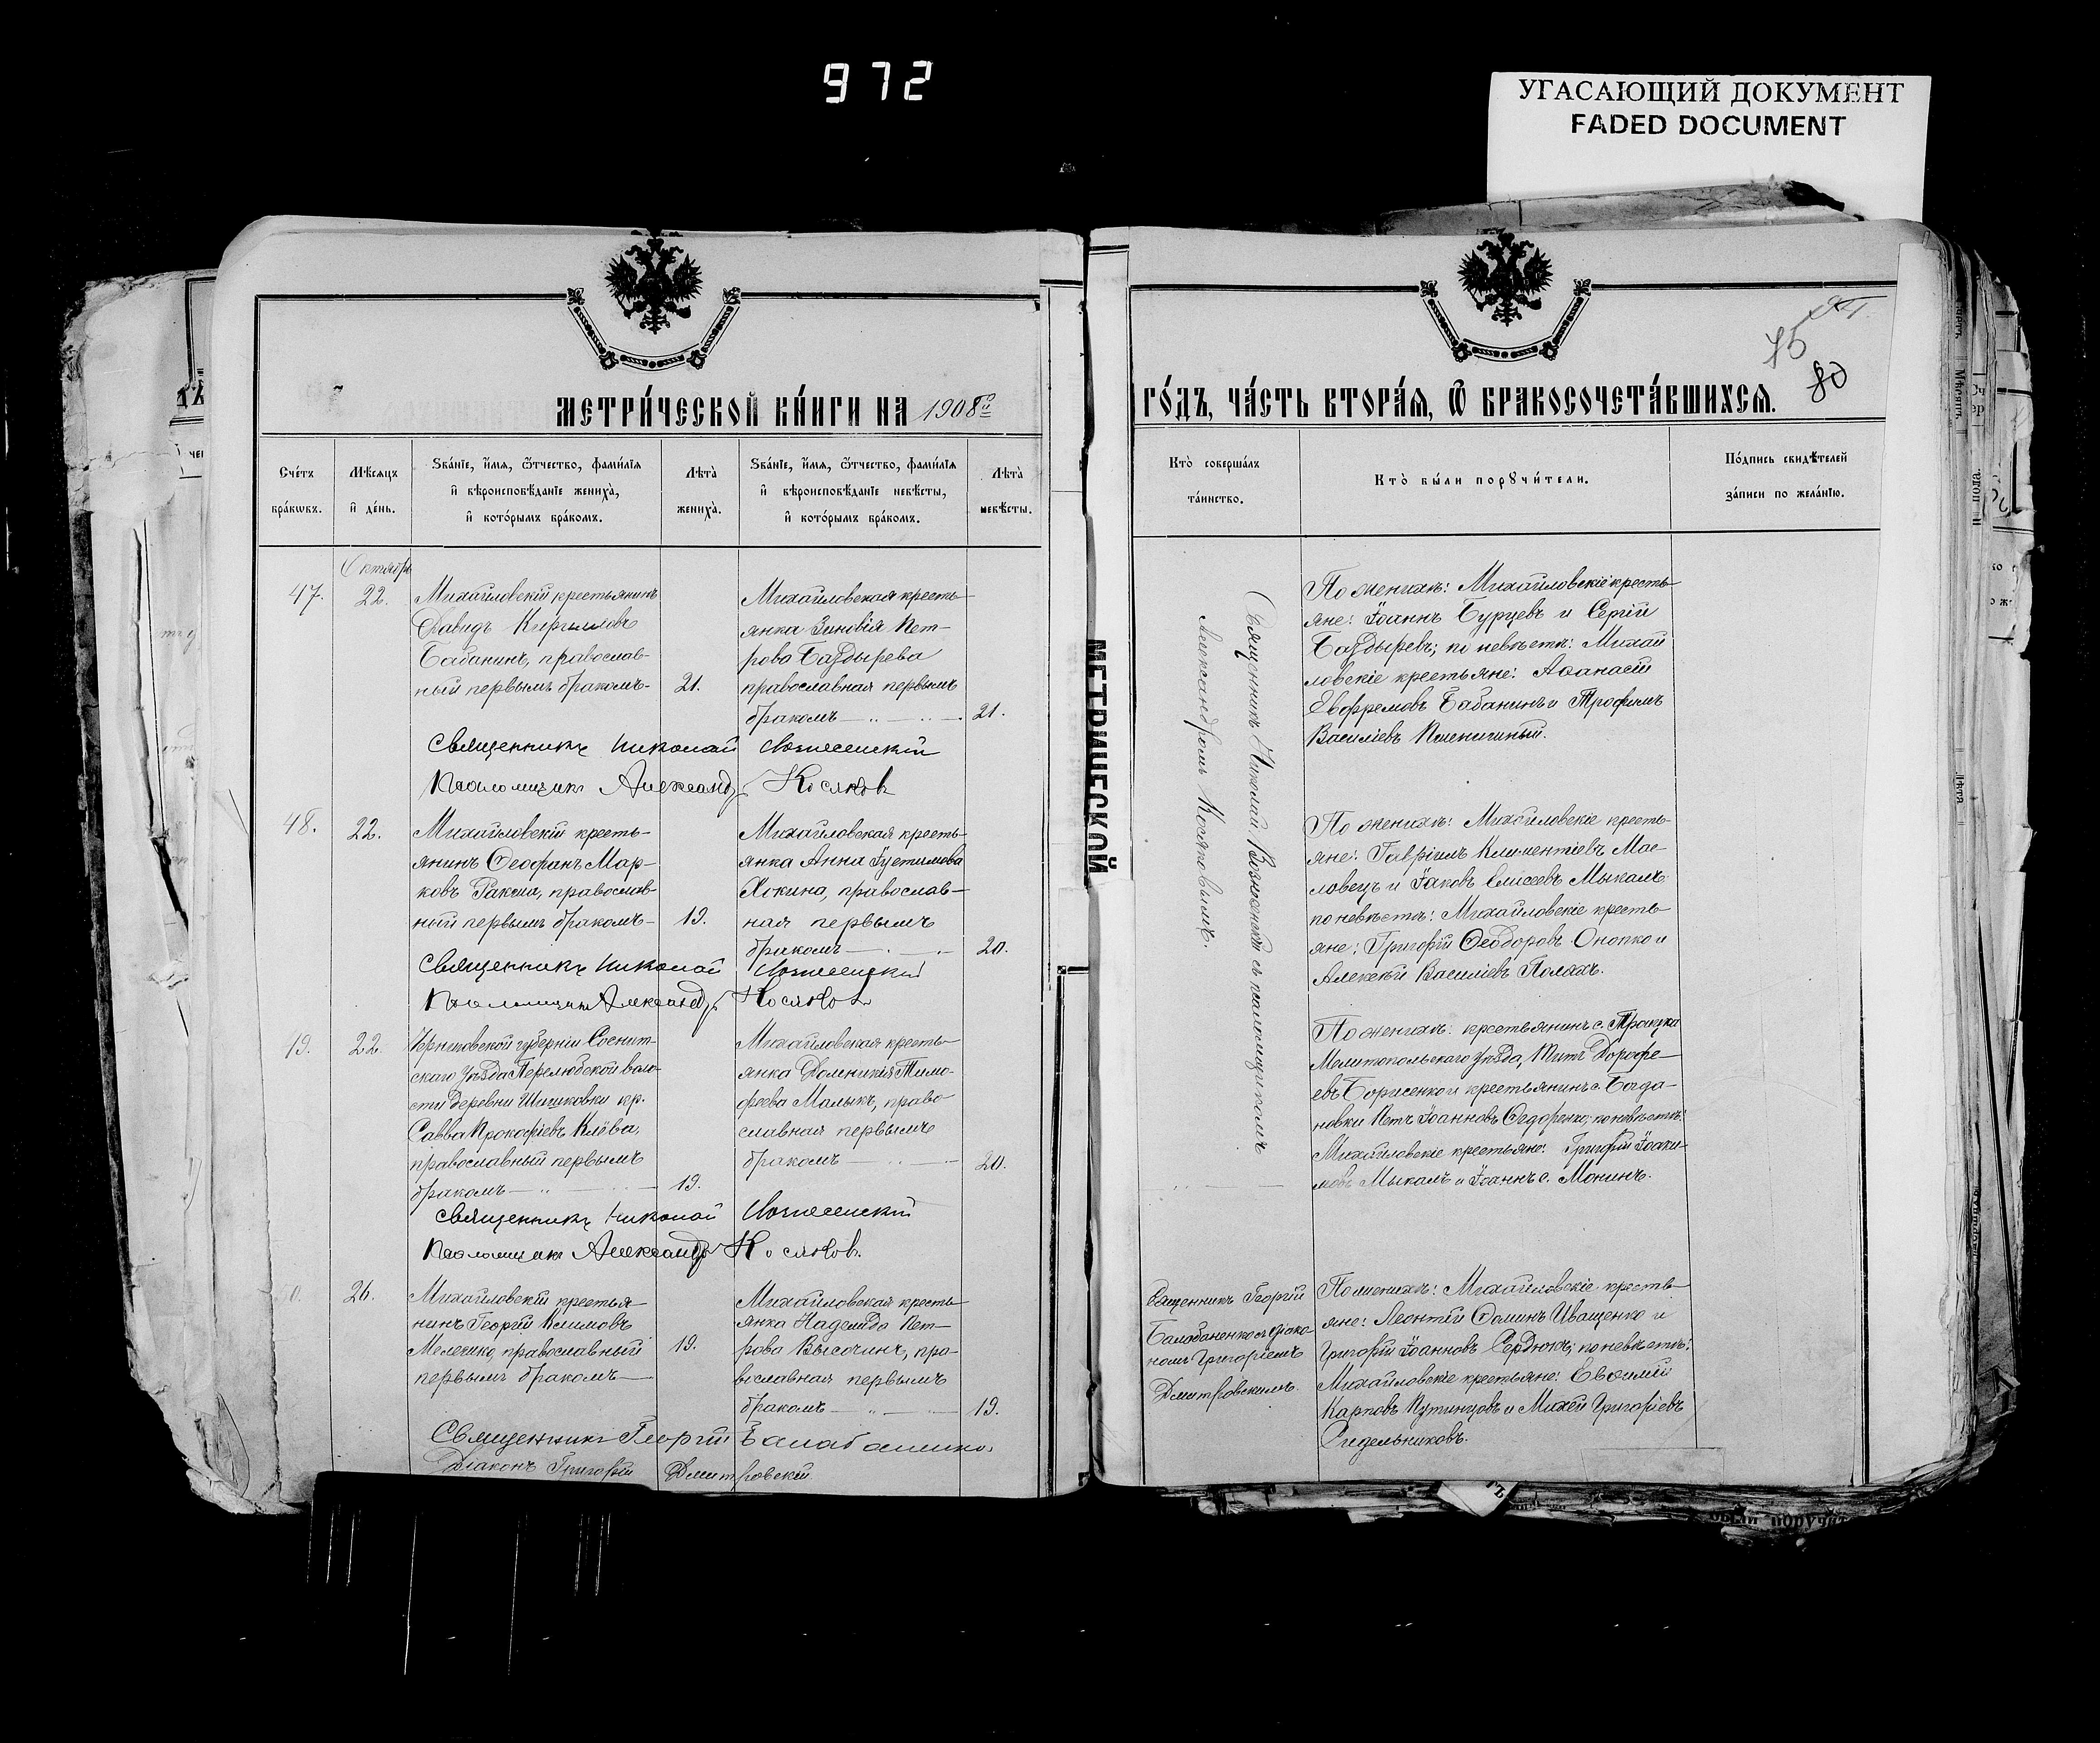 972
УГАСАЮЩИЙ ДОКУМЕНТ
FADED DOCUMENT
75
80
МЕТРИ́ЧЕСКОЙ КНИ́ГИ НА 1908й
ГО́ДЪ, ЧА́СТЬ ВТОРА́Я, Ѽ БРАКОСОЧЕТА́ВШИХСЯ.
Сче́тъ бра́кѡвъ.
Мѣ́сяцъ и҆ де́нь.
Ѕва́нїе, и҆́мя, ѻ҆́тчество, фами́лїя
и҆ вѣроисповѣ́данїе жениха̀,
и҆ кото́рымъ бра́комъ.
Лѣ́та жениха̀.
Ѕва́нїе, и҆́мя, ѻ҆́тчество, фами́лїя
и҆ вѣроисповѣ́данїе невѣ́сты,
и҆ кото́рымъ бра́комъ.
Лѣ́та невѣ́сты.
Кто̀ соверша́лъ
та́инство.
Кто̀ бы́ли порꙋчи́тели.
По́дпись свидѣ́телей
за́писи по жела́нїю.
47.
Октябрь
22.
Михайловскій крестьянинъ
Давидъ Кирилловъ
Бабанинъ, православ-
ный первымъ бракомъ-
21.
Михайловская кресть-
янка Зиновія Пет-
рова Баздырева
православная первымъ
бракомъ
21.
По женихѣ: Михайловскіе кресть-
яне: Іоаннъ Бурцевъ и Сергій
Баздыревъ; по невѣстѣ: Михай
ловскіе крестьяне: Аѳанасій
Евфремовъ Бабанинъ и Трофимъ
Василіевъ Пшеничный.
Священникъ Николай Вознесенскій
Псаломщикъ Александръ Косяков
Священникъ Николай Вознесенскій съ псаломщикомъ
Александромъ Косяковымъ.
48.
22.
Михайловскій кресть-
янинъ Ѳеофанъ Мар-
ковъ Ракша, православ-
ный первымъ бракомъ-
19.
Михайловская кресть-
янка Анна Іустимова
Хокина, православ-
ная первымъ
бракомъ
20.
По женихѣ: Михайловскіе кресть-
яне: Гавріилъ Климентіевъ Мас-
ловецъ и Іаковъ Елисеевъ Мыкалъ
по невѣстѣ: Михайловскіе кресть-
яне: Григорій Ѳеодоровъ Онопко и
Алексѣй Василіевъ Поляхъ.
Священникъ Николай Вознесенскій
Псаломщикъ Александръ Косяков
19.
22.
Черниговской губерніи Сосниц-
скаго уѣзда Перелюбской воло-
сти деревни Шишковки кр.
Савва Прокофіевъ Клёва,
православный первымъ
бракомъ
19.
Михайловская кресть-
янка Домникія Тимо-
феева Малыкъ, право
славная первымъ
бракомъ
20.
По женихѣ: крестьянинъ с. Троицка
Мелитопольскаго уѣзда, Титъ Дорофе-
евъ Борисенко и крестьянинъ с. Богда-
новки Петръ Іоанновъ Ѳедоренко; по невѣстѣ:
Михайловскіе крестьяне: Григорій Іоаки-
мовъ Мыкалъ и Іоаннъ с. Монинъ.
Священникъ Николай Вознесенскій
Псаломщикъ Александръ Косяков.
26.
Михайловскій крестья
нинъ Георгій Климовъ
Мелешко, православный
первымъ бракомъ
19.
Михайловская кресть
янка Надежда Пет-
рова Высочинъ, пра-
вославная первымъ
бракомъ
19.
Священникъ Георгій
Балабаненко съ діако-
номъ Григоріемъ
Дмитровскимъ.
По женихѣ: Михайловскіе кресть-
яне: Леонтій Ѳоминъ Иващенко и
Григорій Іоанновъ Сердюкъ; по невѣстѣ:
Михайловскіе крестьяне: Евѳимій
Карповъ Путинцовъ и Михей Григоріевъ
Сидельниковъ.
Священникъ Георгій Балабаненко.
Діаконъ Григорій Дмитровскій
МЕТРИЧЕСКОЙ